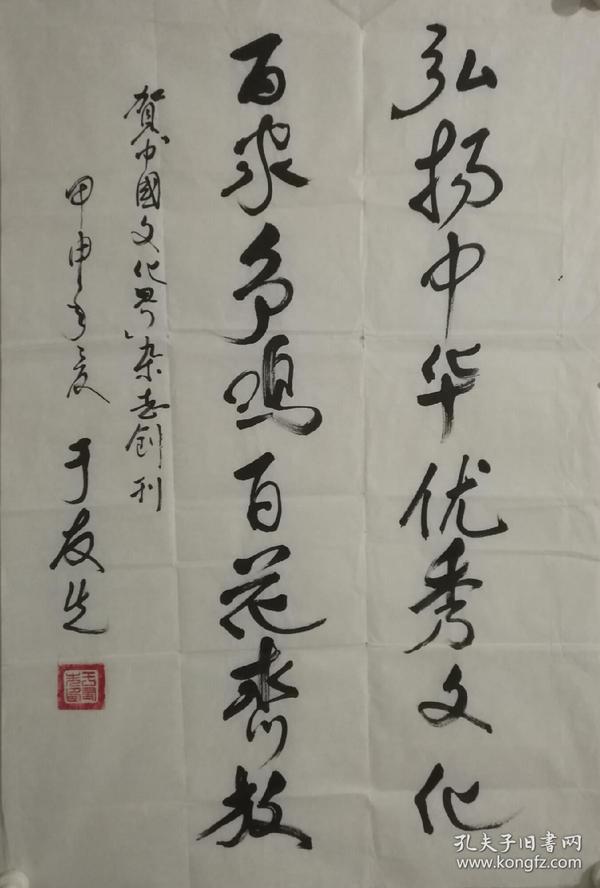 弘扬中华优秀文化
百家争鸣百花齐放
贺《中國文化界》杂志创刊
甲申年夏 于友先
孔夫子旧书网
www.kongfz.com